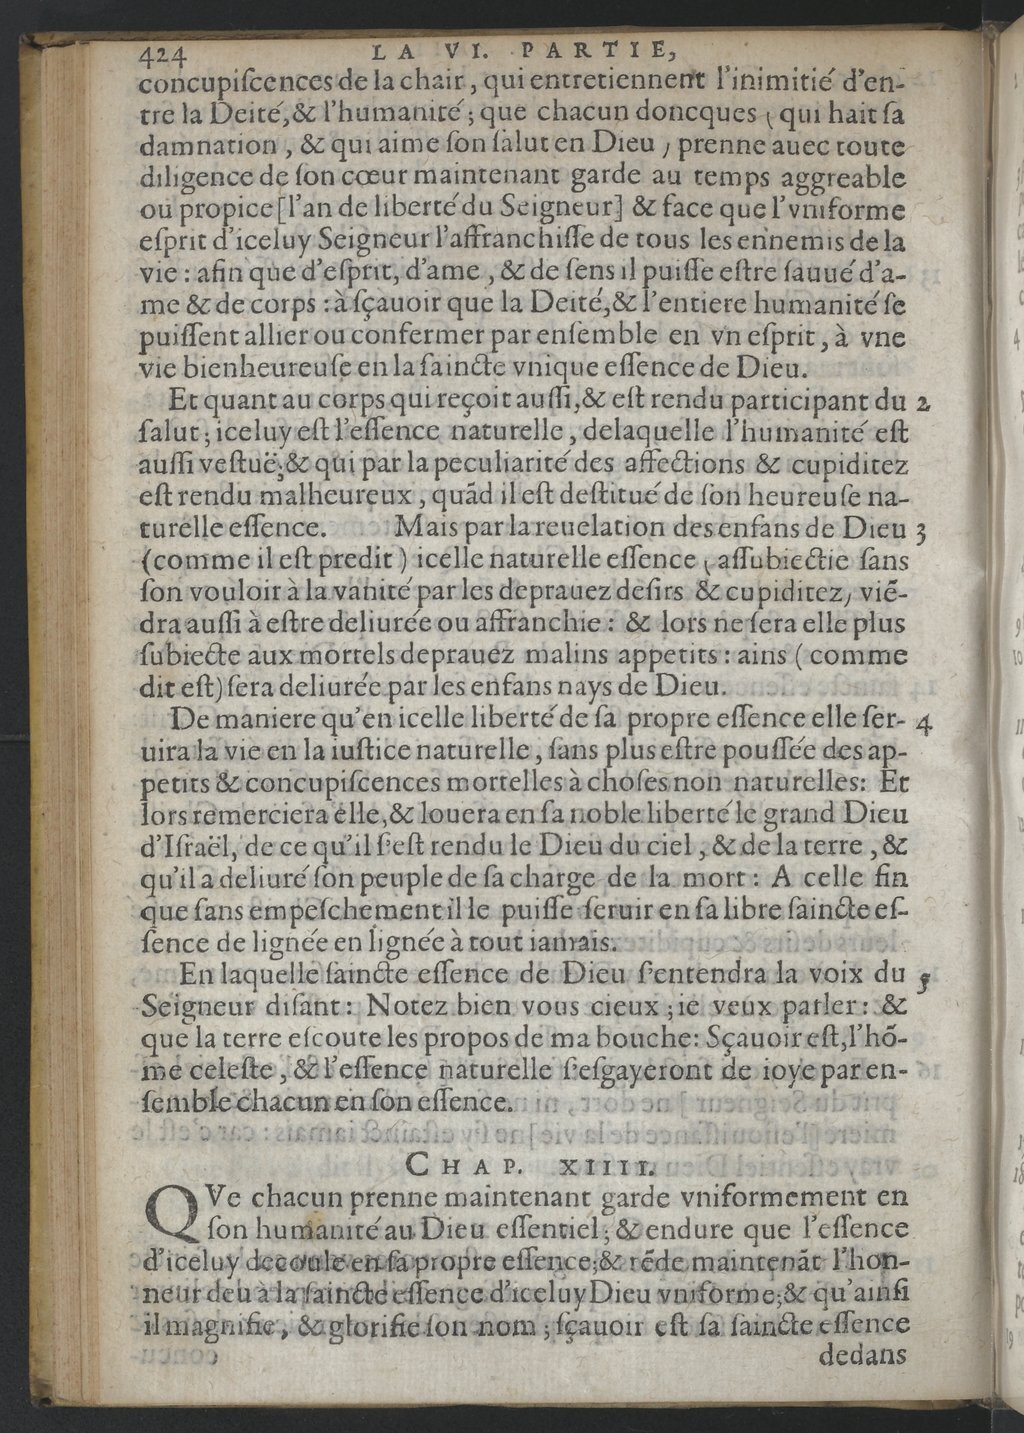 424 LA VI. PARTIE,
concupiſcences de la chair, qui entretiennent l'inimitié d'en-
tre la Deité,& l'humanité; que chacun doncques ( qui hait ſa
damnation, & qui aime ſon ſalut en Dieu ) prenne auec toute
diligence de ſon cœur maintenant garde au temps aggreable
ou propice [l'an de liberté du Seigneur] & face que l'vniforme
eſprit d'iceluy Seigneur l'affranchiſſe de tous les ennemis de la
vie : afin que d'eſprit, d'ame, & de ſens il puiſſe eſtre ſauué d'a-
me & de corps : à ſçauoir que la Deité,& l'entiere humanité ſe
puiſſent allier ou confermer par enſemble en vn eſprit, à vne
vie bienheureuſe en la ſaincte vnique eſſence de Dieu.
Et quant au corps qui reçoit auſſi,& eſt rendu participant du 2
ſalut; iceluy eſt l'eſſence naturelle, delaquelle l'humanité eſt
auſſi veſtuë;& qui par la peculiarité des affections & cupiditez
eſt rendu malheureux, quãd il eſt deſtitué de ſon heureuſe na-
turelle eſſence. Mais par la reuelation des enfans de Dieu 3
(comme il eſt predit ) icelle naturelle eſſence ( aſſubiectie ſans
ſon vouloir à la vanité par les deprauez deſirs & cupiditez) viẽ-
dra auſſi à eſtre deliurée ou affranchie : & lors ne ſera elle plus
ſubiecte aux mortels deprauez malins appetits : ains ( comme
dit eſt) ſera deliurée par les enfans nays de Dieu.
De maniere qu'en icelle liberté de ſa propre eſſence elle ſer- 4
uira la vie en la iuſtice naturelle, ſans plus eſtre pouſſée des ap-
petits & concupiſcences mortelles à choſes non naturelles: Et
lors remerciera elle,& louera en ſa noble liberté le grand Dieu
d'Iſraël, de ce qu'il ſ'eſt rendu le Dieu du ciel, & de la terre, &
qu'il a deliuré ſon peuple de ſa charge de la mort : A celle fin
que ſans empeſchement il le puiſſe ſeruir en ſa libre ſaincte eſ-
ſence de lignée en lignée à tout iamais.
En laquelle ſaincte eſſence de Dieu ſ'entendra la voix du 5
Seigneur diſant : Notez bien vous cieux ; ie veux parler : &
que la terre eſcoute les propos de ma bouche: Sçauoir eſt,l'hõ-
me celeſte, & l'eſſence naturelle ſ'eſgayeront de ioye par en-
ſemble chacun en ſon eſſence.
CHAP. XIIII.
QVe chacun prenne maintenant garde vniformement en
ſon humanité au Dieu eſſentiel; & endure que l'eſſence
d'iceluy decoule en ſa propre eſſence;& rẽde maintenãt l'hon-
neur deu à la ſaincte eſſence d'iceluy Dieu vniforme;& qu'ainſi
il magnifie, & glorifie ſon nom ; ſçauoir eſt ſa ſaincte eſſence
dedans